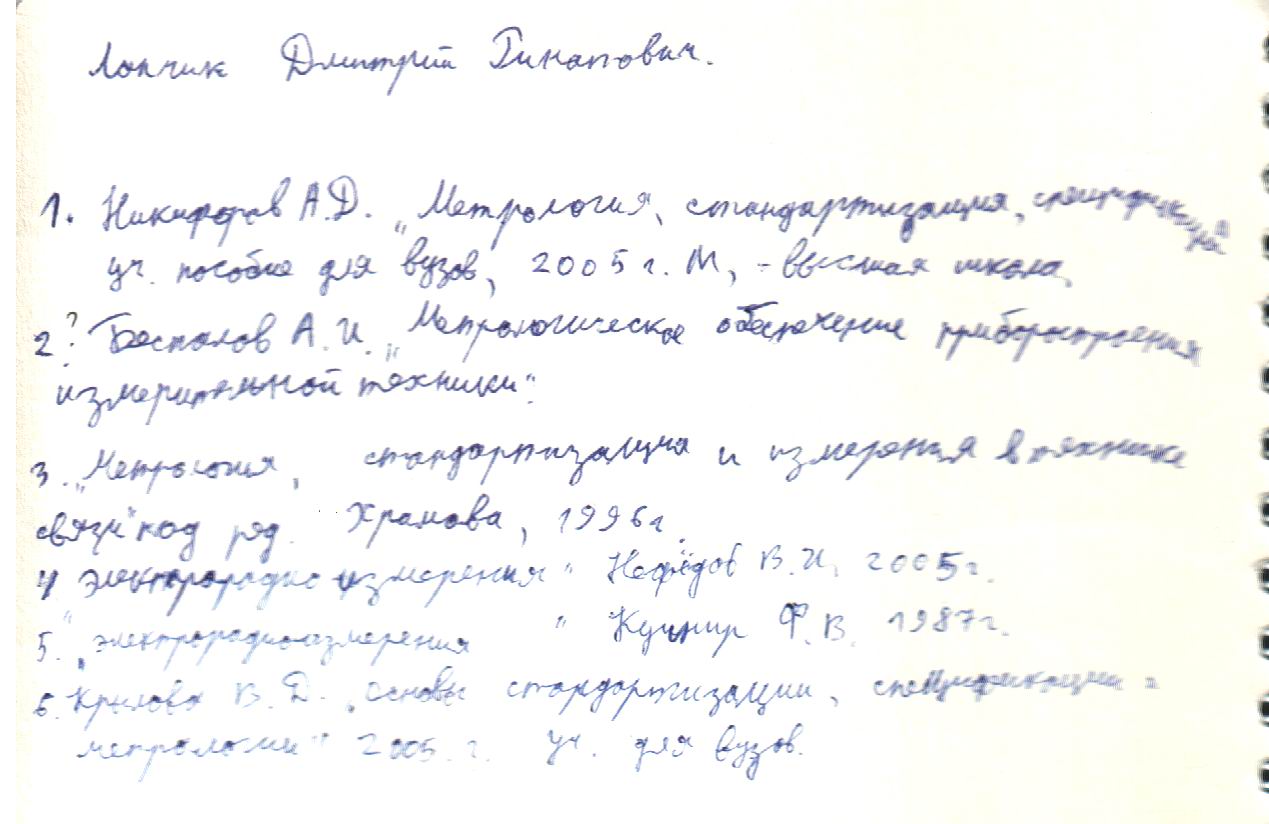 Лопчик Дмитрий Гинапович.
1. Никифоров А.Д. „Метрология, стандартизация, спецификация"
уч. пособие для вузов, 2005 г. М, - высшая школа.
2? Беспалов А.И. „Метрологическое обеспечение приборостроения
измерительной техники".
3. „Метрология, стандартизация и измерения в технике
связи" под ред. Хромова, 1996г.
4. „электрорадио измерения" Нефёдов В.И. 2005г.
5. „электрорадиоизмерения" Кушнир Ф.В. 1987г.
6. Крылова В.Д. „основы стандартизации, спецификации
метрологии" 2005 г. уч. для вузов.